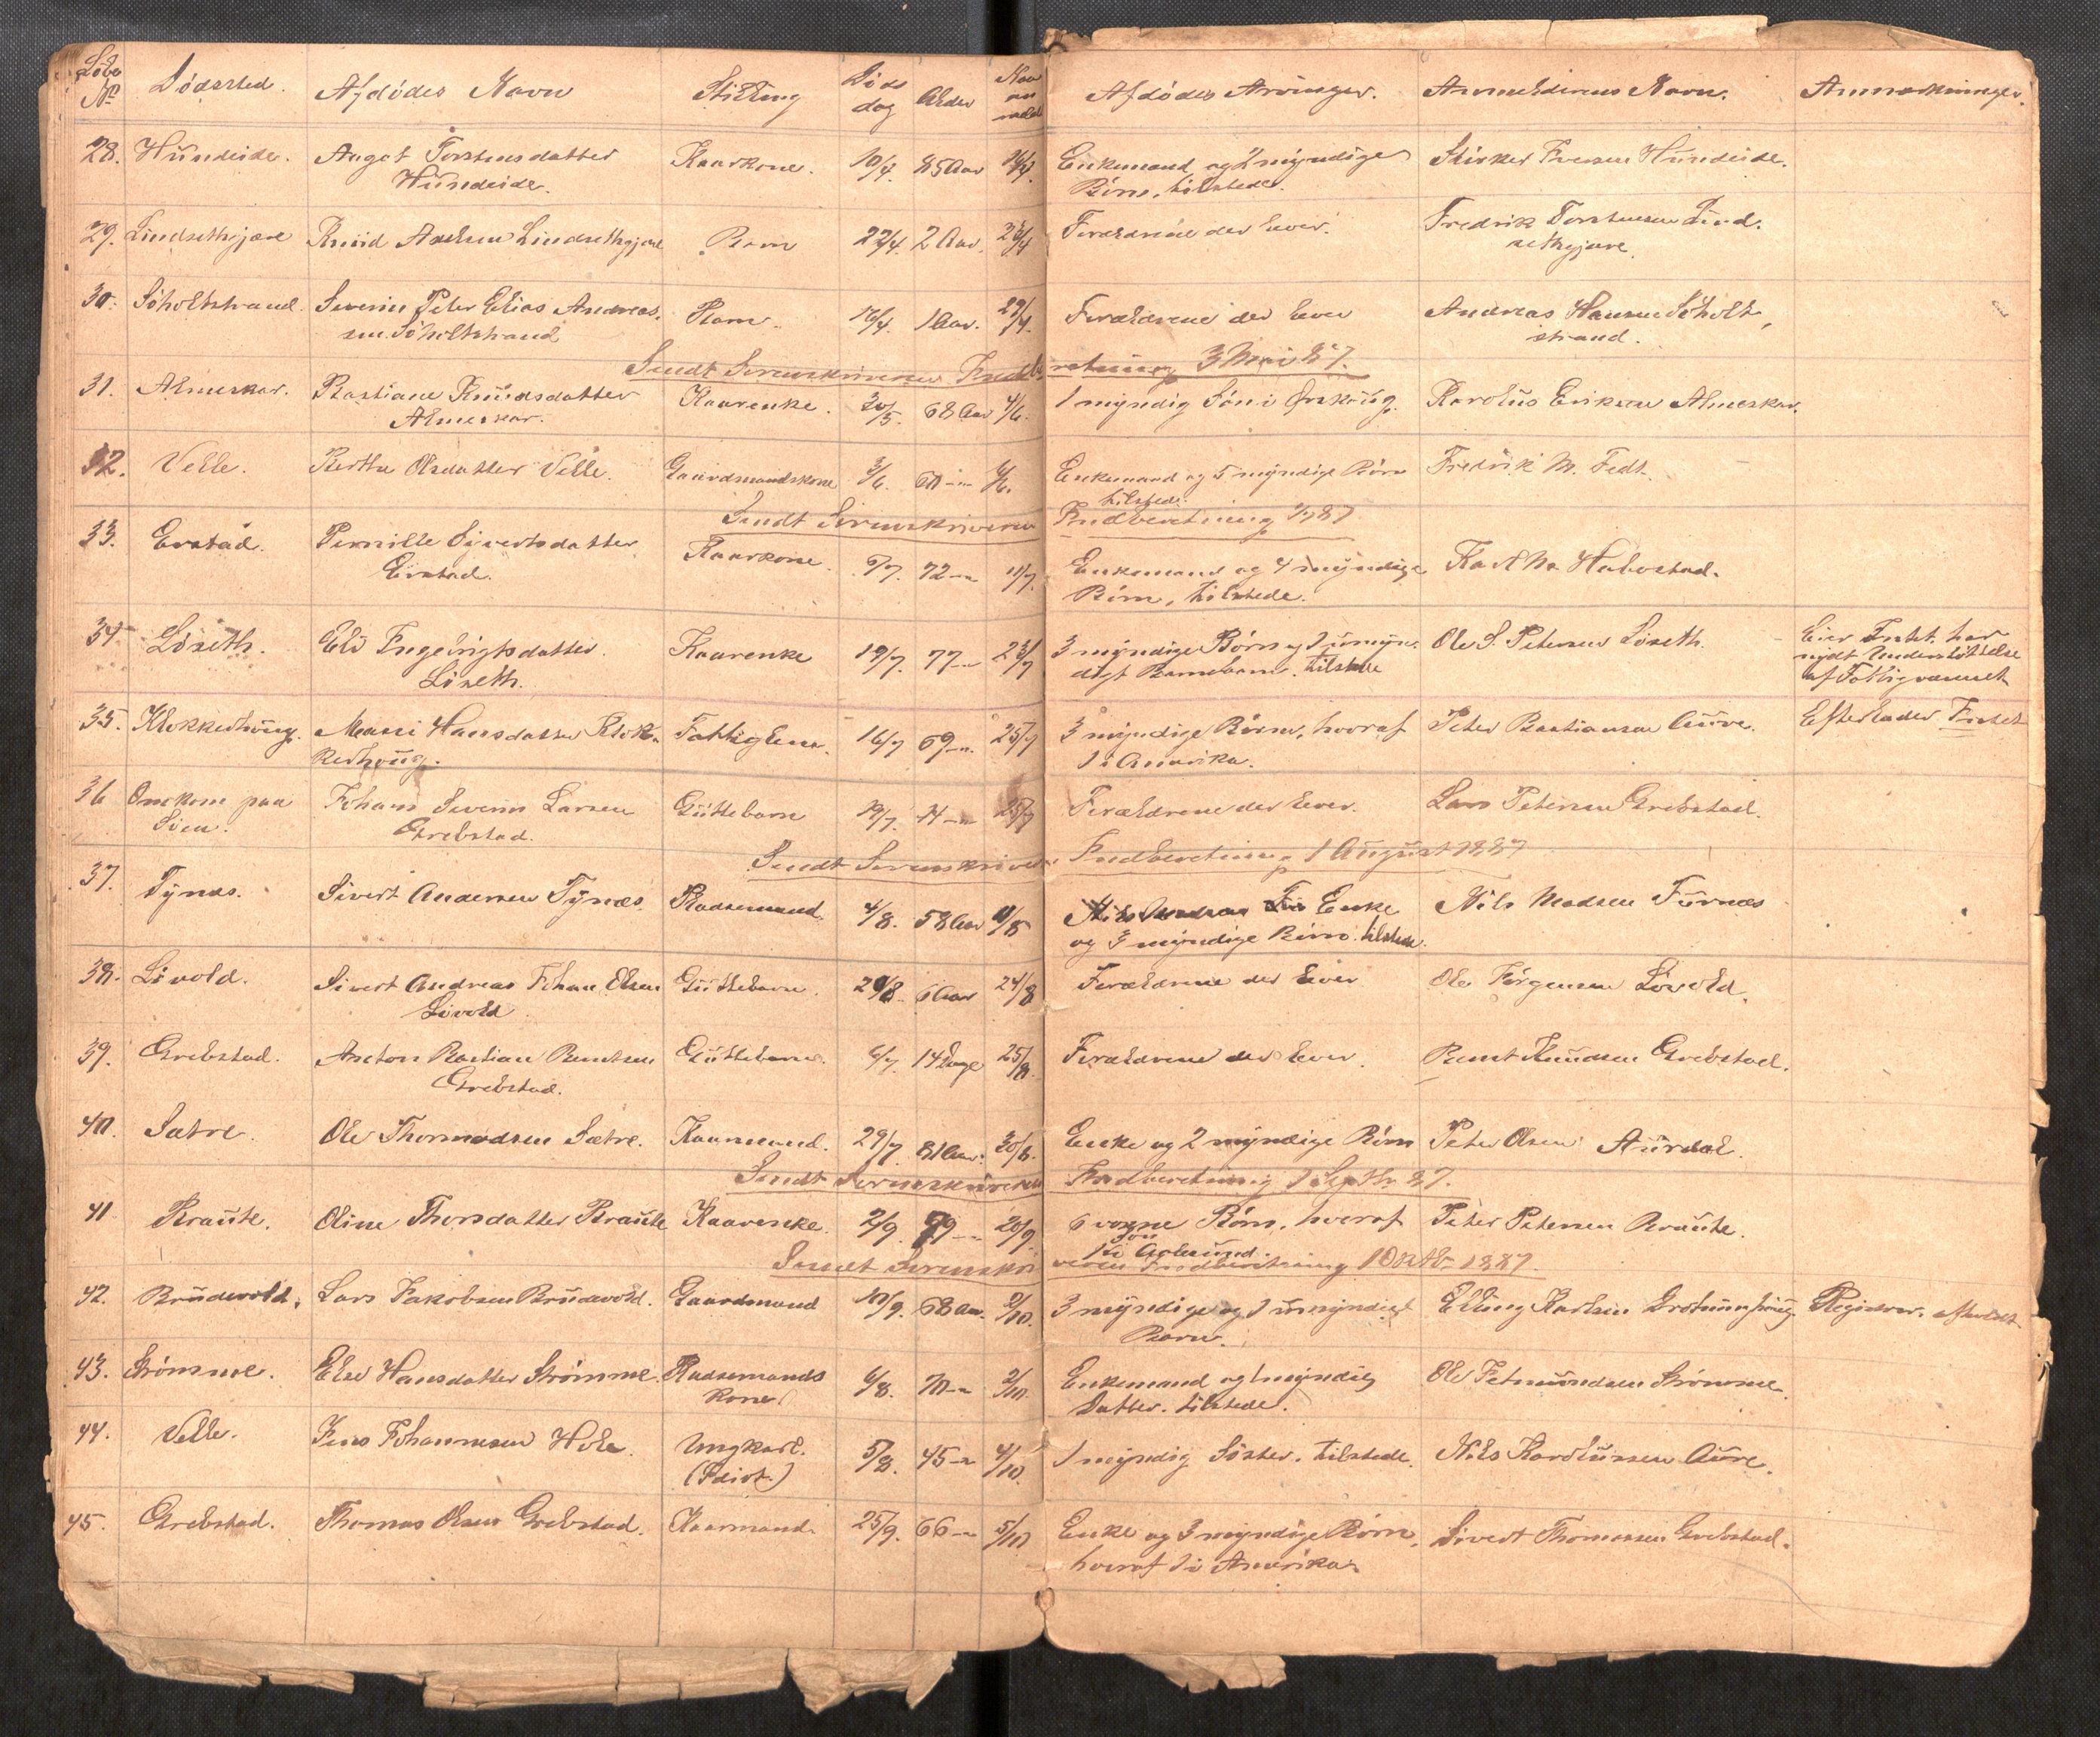 Løbe No Dødssted. Afdødes Navn Stilling Døds dag Alder Naar anmeldt Afdødes Arvinger. Anmelderens Navn. Anmærkninger.
28. Hundeide. Anget Torstensdatter Kaarkone. 10/4. 85 Aar 16/4. Enkemand og 2 myndige Iversen Hundeide.
Hundeide. Børn, tilstede.
29. Lindsethgjære Knud Axelsen Lindsethgjære Barn 22/4. 2 Aar. 23/4 Forældrene der lever. Fredrik Torstensen Lind-
sethgjære.
30. Søholtstrand Severin Peter Elias Andreas- Barn. 16/4. 1 Aar. 29/4. Forældrene der lever Andreas Hansen Søholt-
sen Søholtstrand strand.
Sendt Sorenskriveren Indberetning 3 Mai 87.
31. Almeskar. Bastiane Knudsdatter Kaarenke. 30/5. 68 Aar 4/6. 1 myndig Søn i Ørskoug. Karolus Eriksen Almeskar.
Almeskar.
32. Velle. Berthe Olsdatter Velle. Gaardmandskone 3/6. 60 -"- 6/6. Enkemand og 5 myndige Børn Fredrik M. Fedt.
tilstede.
Sendt Sorenskriveren Indberetning 1/7 87
33. Erstad. Pernille Sivertsdatter Kaarkone. 6/7. 72 -"- 11/7. Enkemand og 4 myndige Karl M. Habostad.
Erstad. Børn, tilstede.
34 Løseth. Eli Ingebrigtsdatter. Kaarenke 19/7. 77 -"- 23/7 3 myndige Børn og 1 umyn- Ole S. Petersen Løseth. Eier Intet. har
Løseth. digt Barnebarn. tilstede nydt Understøttelse
af Fattigvæsenet
35. Klokkerhoug. Massi Hansdatter Klok- Fattiglem. 16/7 69 -"- 25/7 3 myndige Børn, hvoraf Peter Bastiansen Aure. Efterlader Intet
kerhoug. 1 i Amerika.
36 Omkom paa Johan Severin Larsen Guttebarn 19/7. 14 -"- 25/7 Forældrene der lever. Lars Petersen Grebstad.
Søen. Grebstad.
Sendt Sorenskriveren Indberetning 1 August 1887
37. Tynæs. Sivert Andersen Tynæs. Pladsemand. 4/8. 58 Aar 11/8 Enke Nils Madsen Furnæs
og 3 myndige Børn. tilstede.
38. Løvold. Sivert Andreas Johan Olsen Guttebarn. 20/8. 6 Aar 24/8 Forældrene der lever Ole Jørgensen Løvold.
Løvold.
39. Grebstad. Anton Bastian Berntsen Guttebarn. 6/7. 14 Dage 25/8. Forældrene der lever. Bernt Knudsen Grebstad.
Grebstad.
40. Sætre. Ole Thormodsen Sætre. Kaarmand. 29/7 81 Aar. 30/8. Enke og 2 myndige Børn Peter Olsen Aurdal.
Sendt Sorenskriveren Indberetning 1 Septbr 87.
41 Braute. Oline Thorsdatter Braute Kaarenke. 2/9. 79 -"- 20/9. 6 voxne Børn, hvoraf Peter Petersen Braute.
1 i Aalesund.
Sendt Sorenskriveren Indberetning 1 Oktb. 1887.
42. Brudevold. Lars Jakobsen Brudevold. Gaardmand 10/9. 68 Aar. 2/10. 3 myndige og 1 umyndigt Elling Karlsen Registrer. afholdt
Barn.
43. Strømme. Else Hansdatter Strømme. Pladsemands 6/8. 70 -"- 2/10. Enkemand og 1 myndig Ole Petersen Strømme.
kone. Datter. tilstede.
44. Velle. Jens Johannesen Hole. Ungkarl. 5/8. 45 -"- 4/10. 1 myndig Søster. tilstede. Nils Karolussen Aure.
(Idiot.)
45. Grebstad. Thomas Olsen Grebstad. Kaarmand. 25/9. 66 -"- 5/10 Enke og 3 myndige Børn, Sivert Thomassen Grebstad.
hvoraf 1 i Amerika.